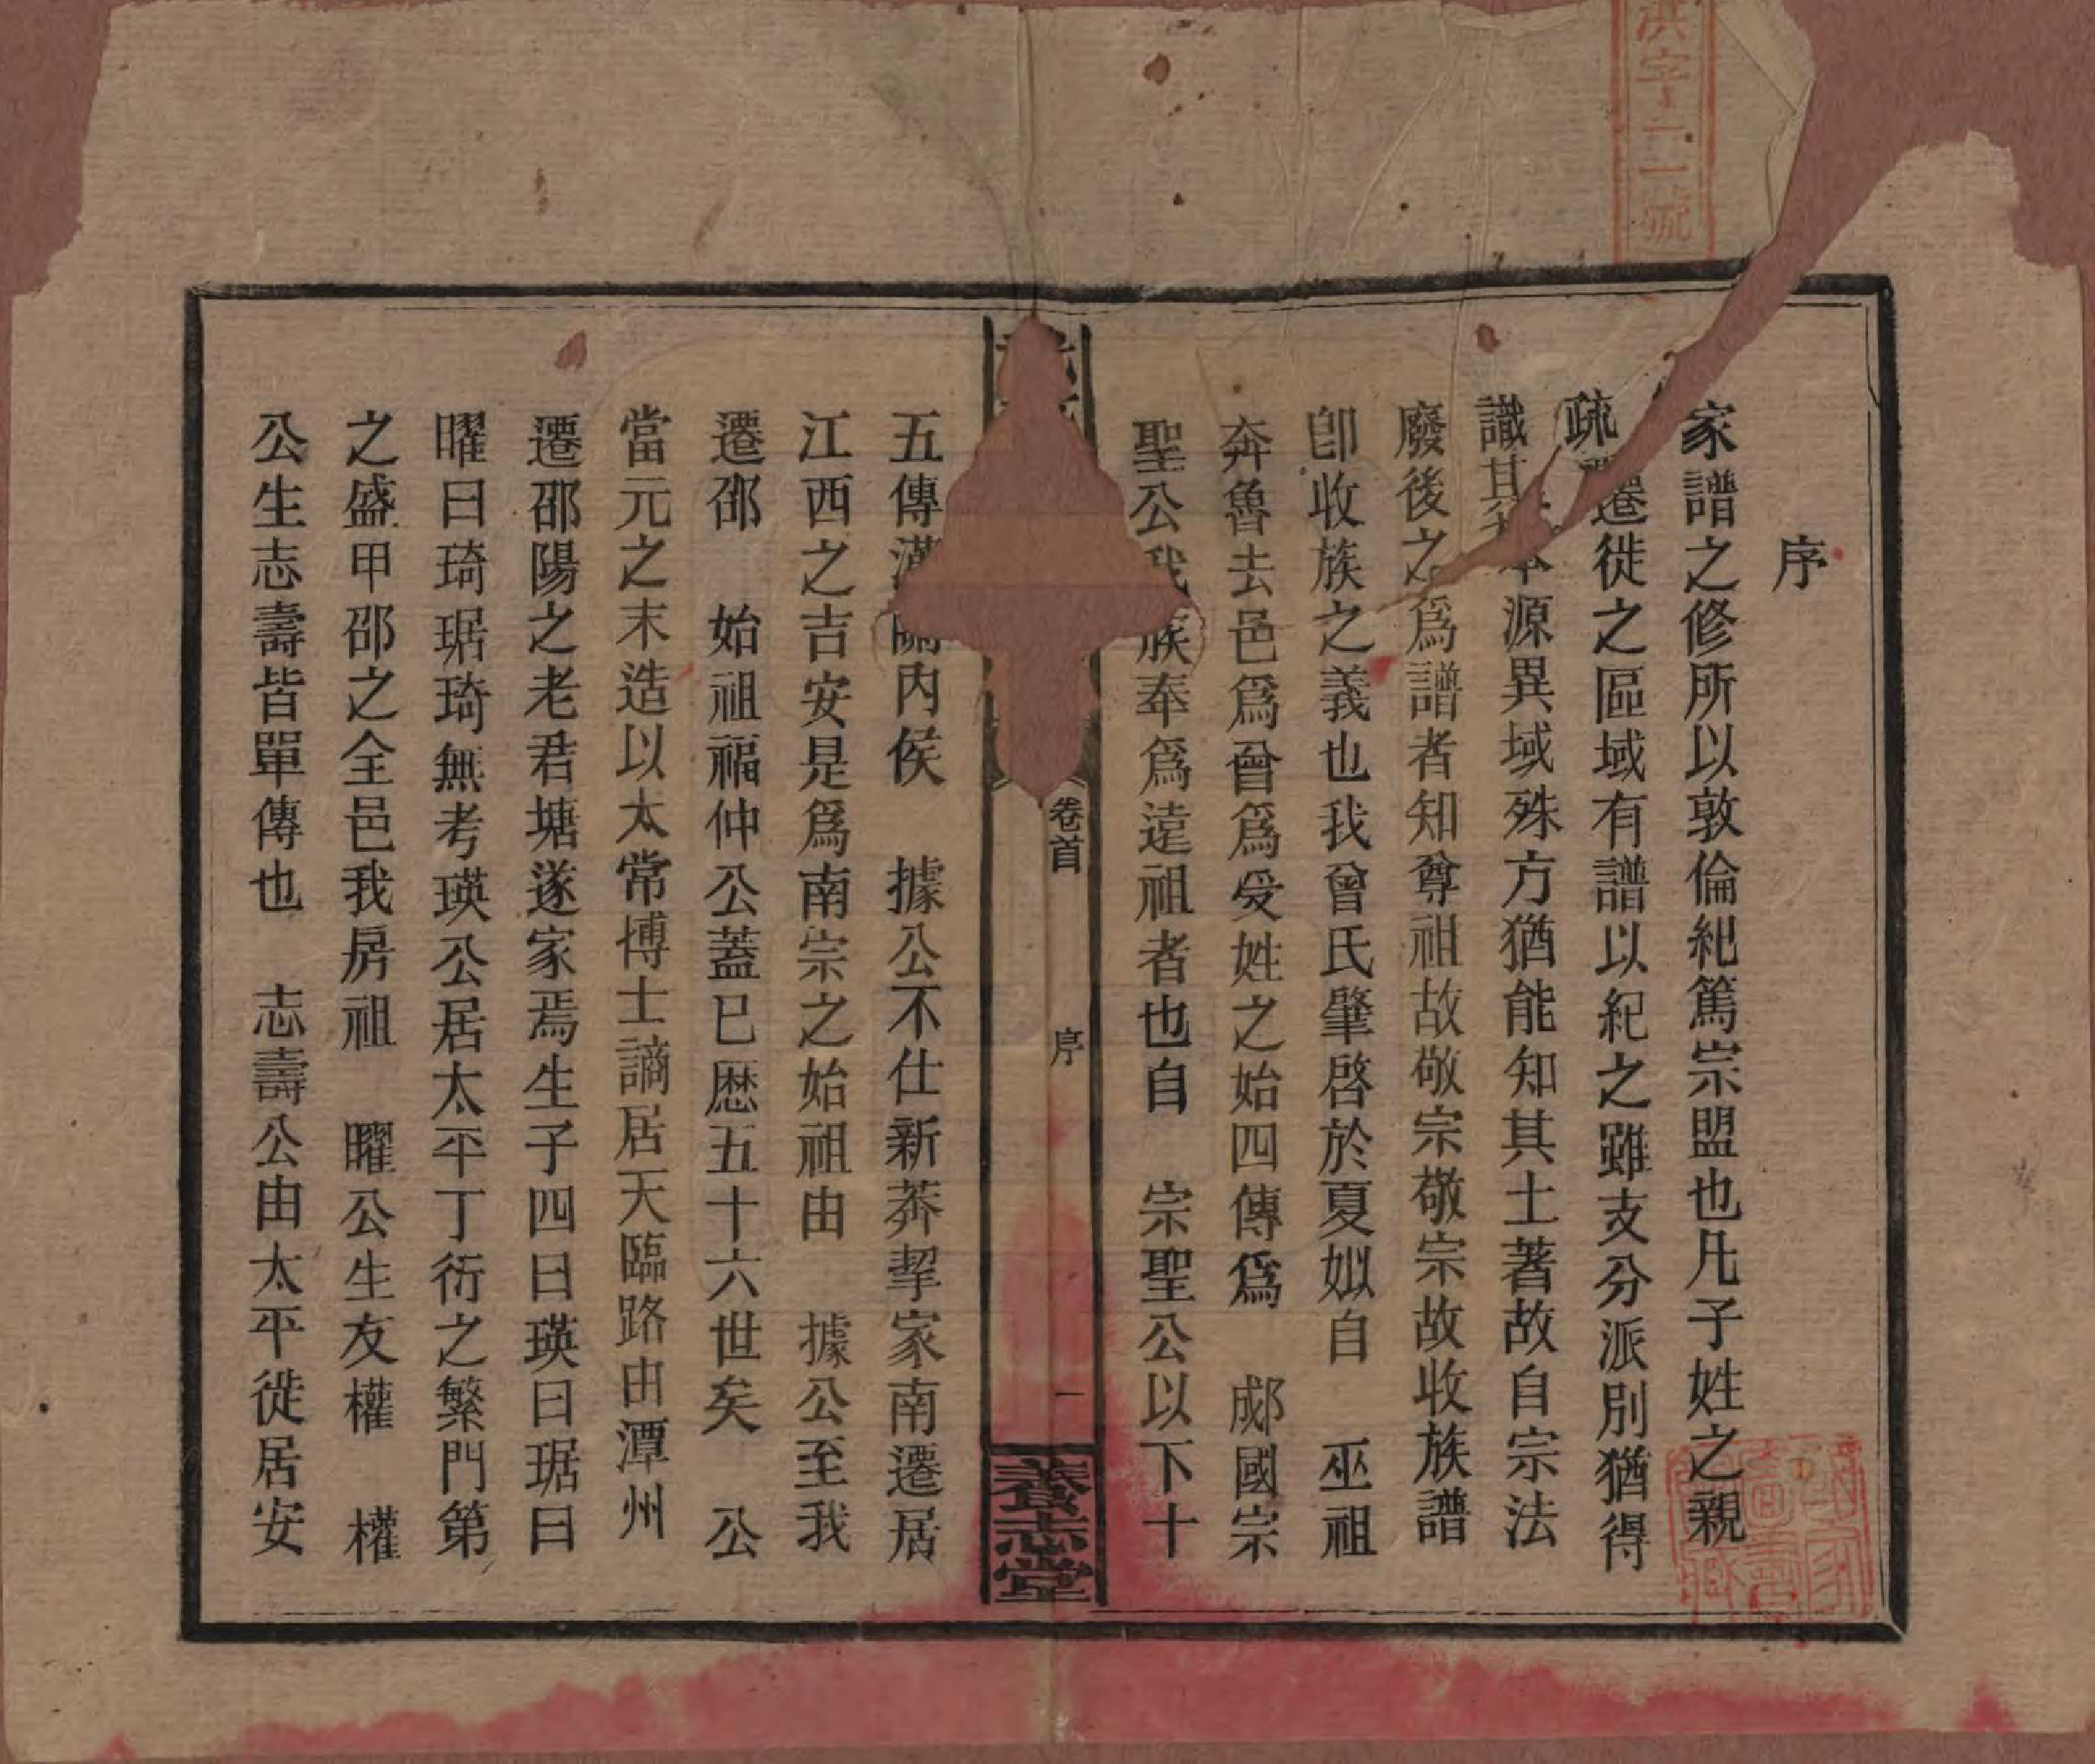 洪字二一號
序
家譜之修所以敦倫紀篤宗盟也凡子姓之親
疏遷徙之區域有譜以紀之雖支分派別猶得
識其本源異域殊方猶能知其土著故自宗法
廢後之爲譜者知尊祖故敬宗敬宗故收族譜
卽收族之義也我曾氏肇啓於夏姒自 巫祖
奔魯去邑爲曾爲受姓之始四傳爲 郕國宗
聖公我族奉爲遠祖者也自 宗聖公以下十
卷首 序 一 養志堂
五傳漢關內侯 據公不仕新莽挈家南遷居
江西之吉安是爲南宗之始祖由 據公至我
遷邵 始祖福仲公蓋已歷五十六世矣 公
當元之末造以太常博士謫居天臨路由潭州
遷邵陽之老君塘遂家焉生子四曰瑛曰琚曰
曜曰琦琚琦無考瑛公居太平丁衍之繁門第
之盛甲邵之全邑我房祖 曜公生友權 權
公生志壽皆單傳也 志壽公由太平徙居安